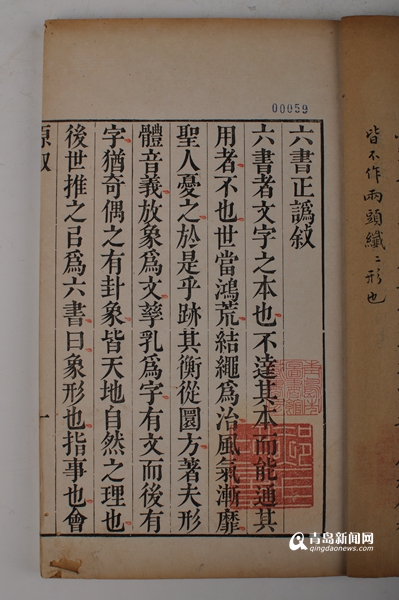 00059
六書正譌敘
六書者文字之本也不達其本而能通其
用者不也世當鴻荒結繩爲治風氣漸靡
聖人憂之於是乎跡其衡從圜方著夫形
體音義放象爲文孳乳爲字有文而後有
字猶奇偶之有卦象皆天地自然之理也
後世推之㠯爲六書曰象形也指事也會
原敘
一
皆不作兩頭纖二形也
青岛新闻网
qingdaonews.com